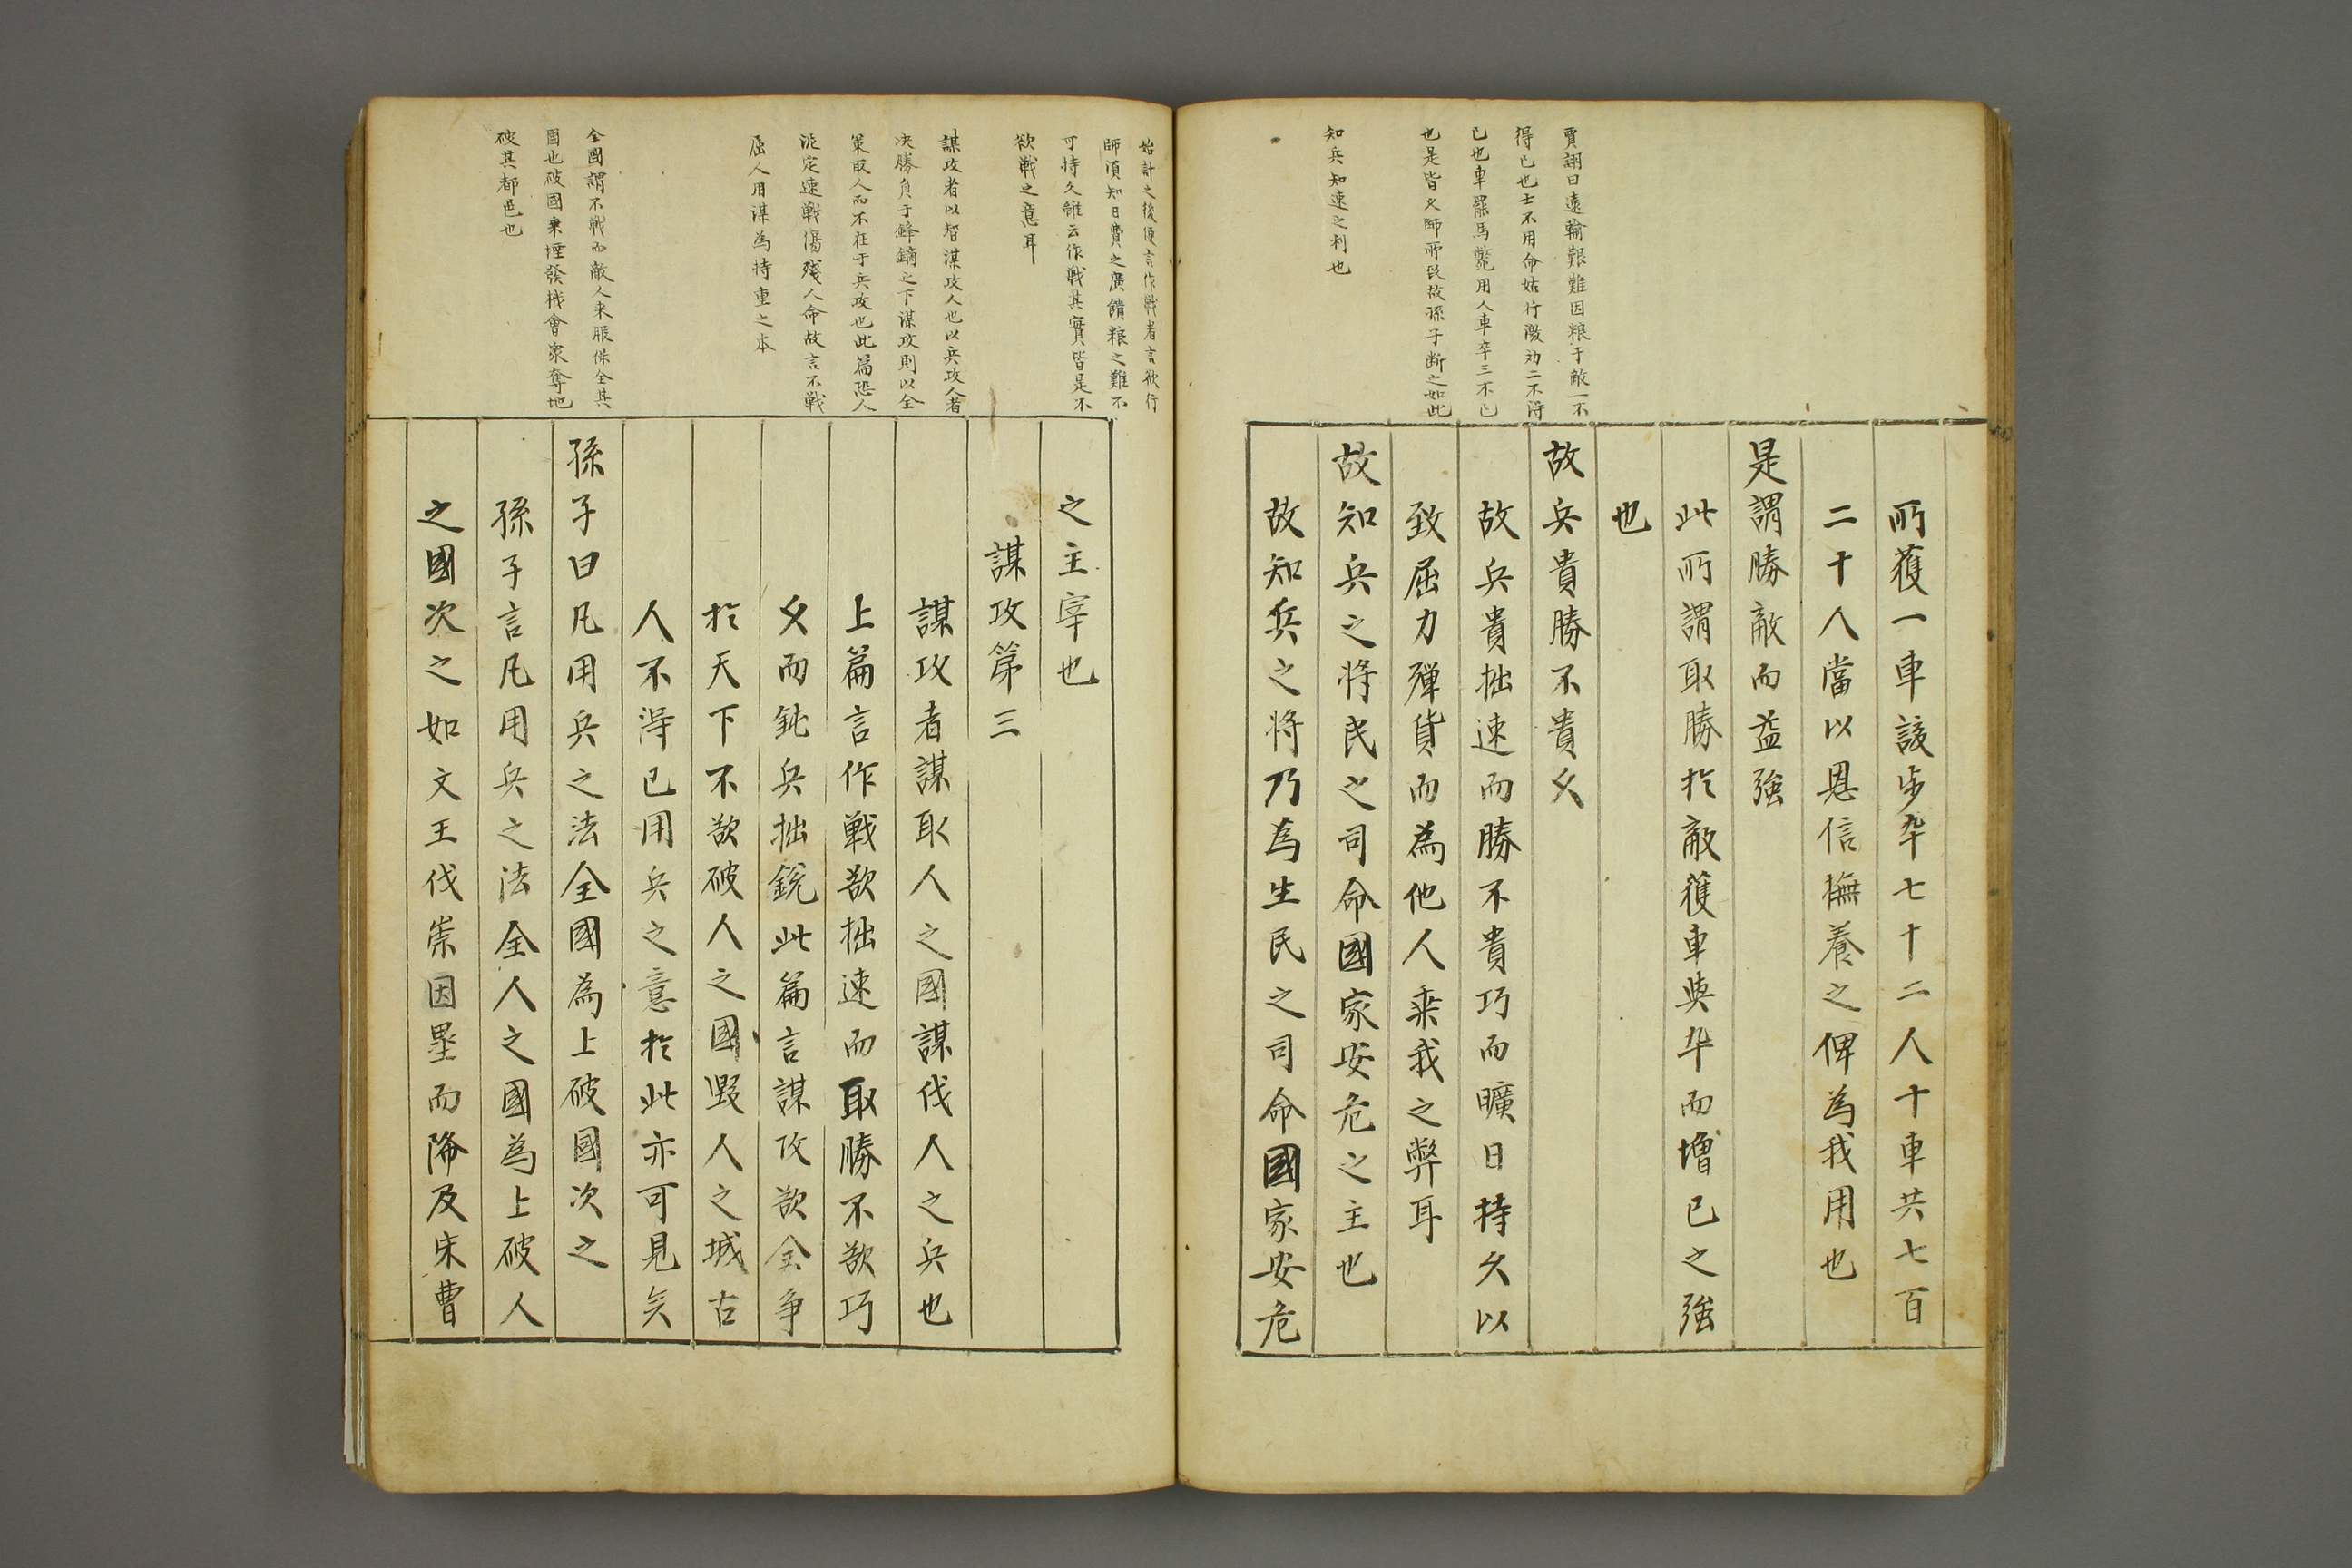 賈詡曰遠輸艱難因粮于敵一不
得已也士不用命姑行激劝二不得
已也車罷馬斃用人車卒三不已
也是皆久師所致故孫子断之如此
知兵知速之利也
所獲一車該步卒七十二人十車共七百
二十人當以恩信撫養之俾為我用也
是謂勝敵而益強
此所謂取勝於敵獲車與卒而增已之強
也
故兵貴勝不貴久
故兵貴拙速而勝不貴巧而曠日持久以
致屈力殫貨而為他人乘我之弊耳
故知兵之将民之司命國家安危之主也
故知兵之将乃為生民之司命國家安危
始計之後便言作戦者言欲行
師湏知日費之廣饋粮之難不
可持久雖云作戦其實皆是不
欲戦之意耳
謀攻者以智謀攻人也以兵攻人者
决勝負于鋒鏑之下謀攻則以全
策取人而不在于兵攻也此篇恐人
泥定速戦傷殘人命故言不戦
屈人用謀為持重之本
全國謂不戦而敵人来服保全其
國也破國乗堙發栈會衆奪地
破其都邑也
之主宰也
謀攻第三
謀攻者謀取人之國謀伐人之兵也
上篇言作戦欲拙速而取勝不欲巧
久而鈍兵挫銳此篇言謀攻欲全争
於天下不欲破人之國毀人之城古
人不得已用兵之意於此亦可見矣
孫子曰凡用兵之法全國為上破國次之
孫子言凡用兵之法全人之國為上破人
之國次之如文王伐崇因壘而降及宋曹